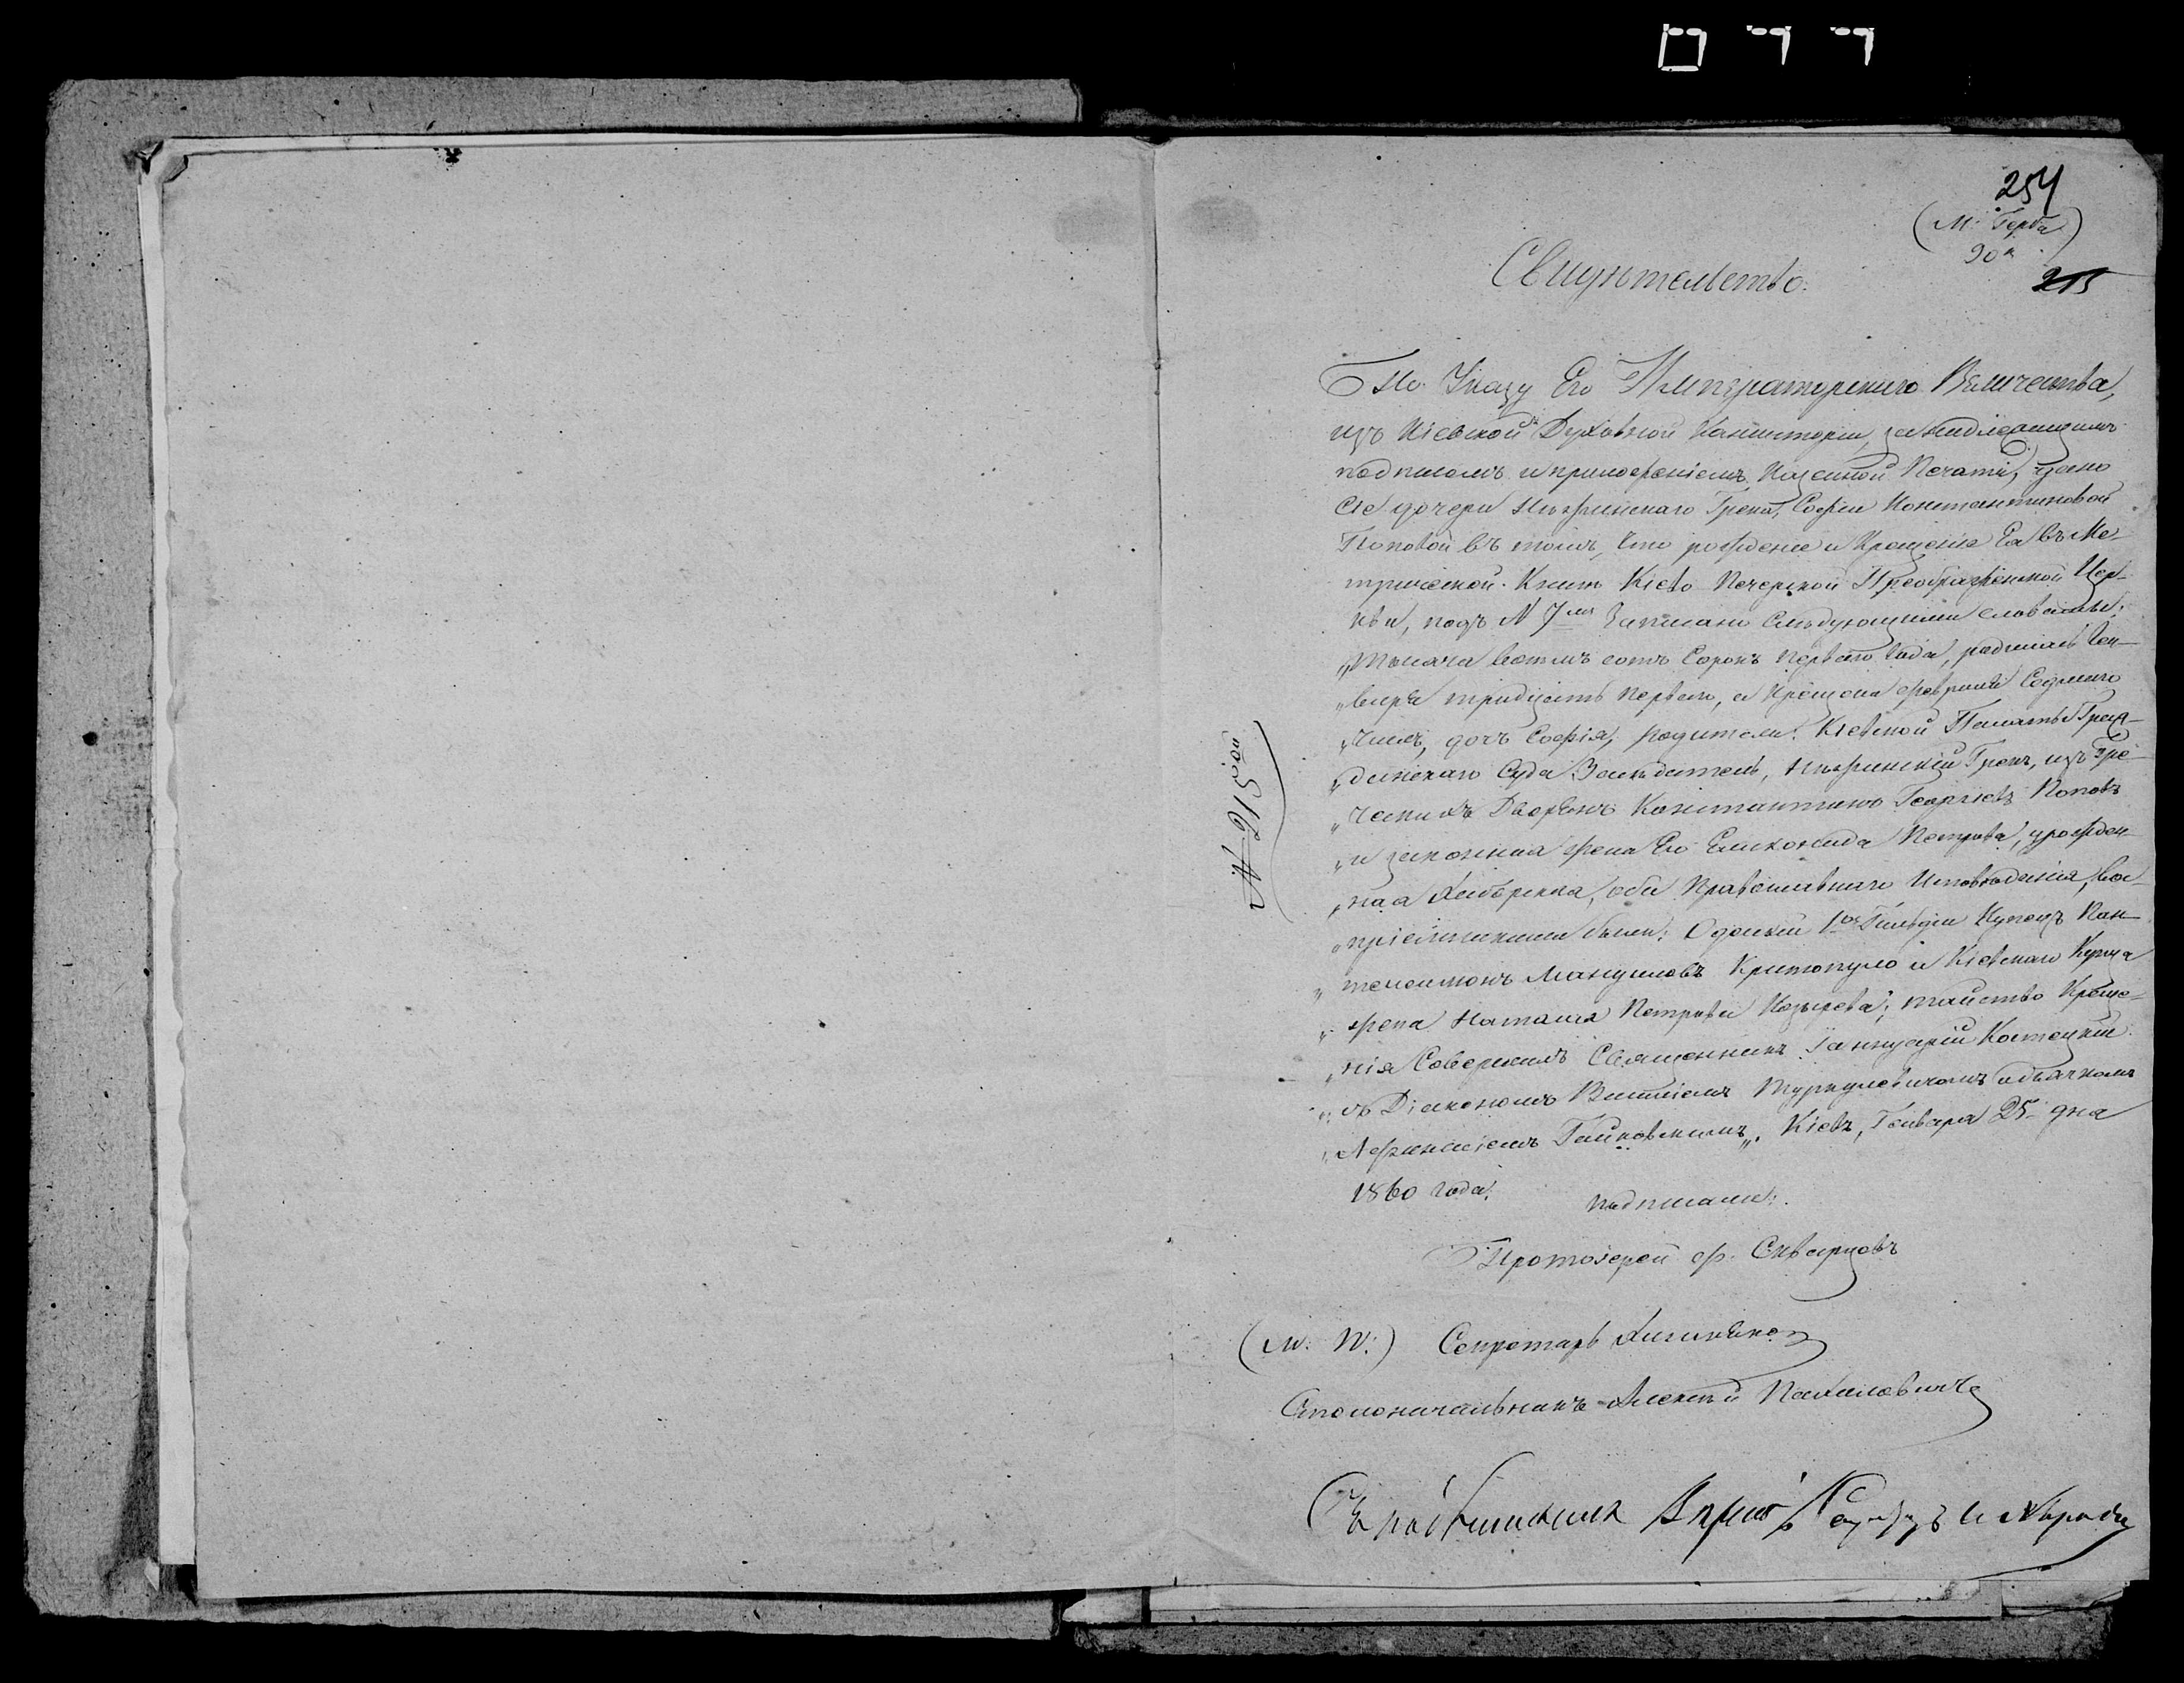 254
(М. Герба)
90 к.
215
Свидѣтельство.
По Указу Его Императорскаго Величества,
изъ Кіевской Духовной Консисторіи, за надлежащимъ
подписомъ и приложеніемъ Казенной Печати, дано
сіе дочери Нѣжинскаго Грека, Софіи Константиновой
Поповой въ томъ, что рожденіе и Крещеніе Ея въ Ме-
трической Книгѣ Кіево Печерской Преображенской Цер-
кви, подъ N 7мъ Записано Слѣдующими словами:
„Тысяча восемъ сотъ Сорокъ перваго года, родилась Ген-
„варя тридцать перваго, а Крещена февраля Седмаго
„Числъ, дочь Софія, родители: Кіевской Палаты Граж-
„данскаго Суда Засѣдатель, Нѣжинскій Грекъ, изъ Гре-
„ческихъ Дворянъ Константинъ Георгіевъ Поповъ
„и законная жена Его Еликонида Петрова, урожден-
„ная, оба Православнаго Исповѣданія, вос-
„пріемниками были: Одескій 1ой Гильдіи Купецъ Пан-
„телеимонъ Мануиловъ Критопуло и Кіевскаго Купца
„жена Наталія Петрова Козырева; таинство Креще-
„нія Совершилъ Священникъ Іаннуарій Костецкій
„съ Діакономъ Василіемъ Туркулевичемъ и дьячкомъ
„Афанасіемъ Гайковскимъ„. Кіевъ, Генваря 25 дня
1860 года.
Подписали:
Протоіерей Скварцовъ
(М. П.) Секретарь
Столоначальникъ Алексѣй Пахаловичъ
Съ подлиннымъ вѣрно:
№ 215ой